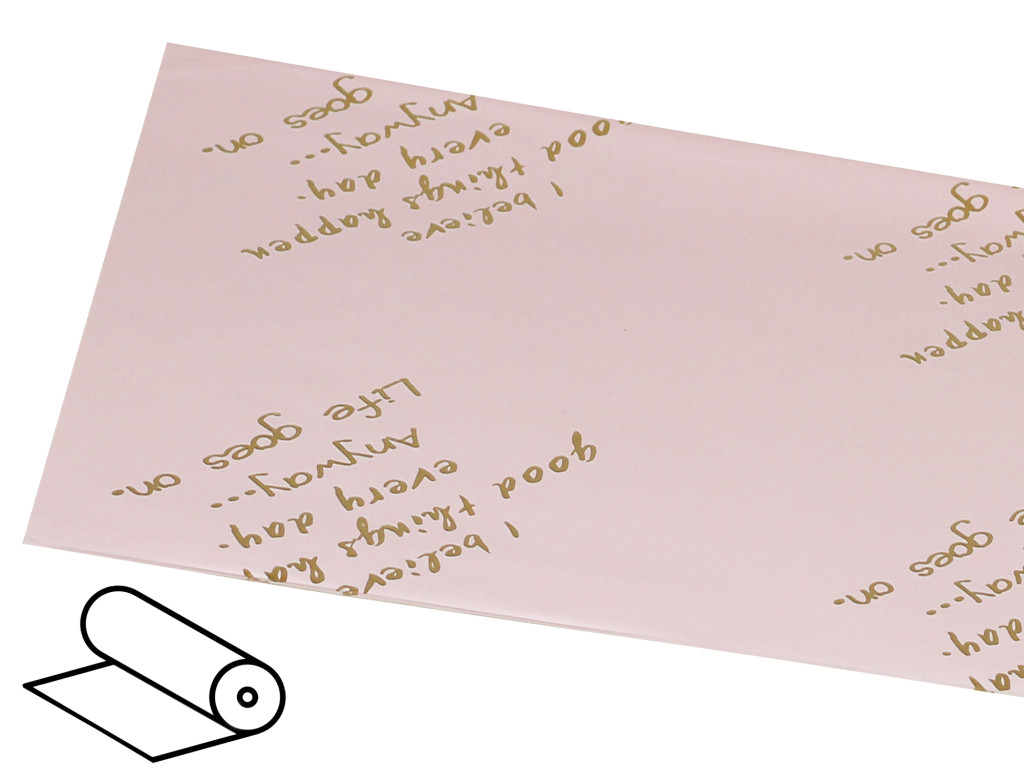 I believe
ood things happen
every day.
Anyway...
goes on.
happen
day.
way...
goes on.
I believe
good things hap
every day.
Anyway...
Life goes on.
day.
way...
goes on.